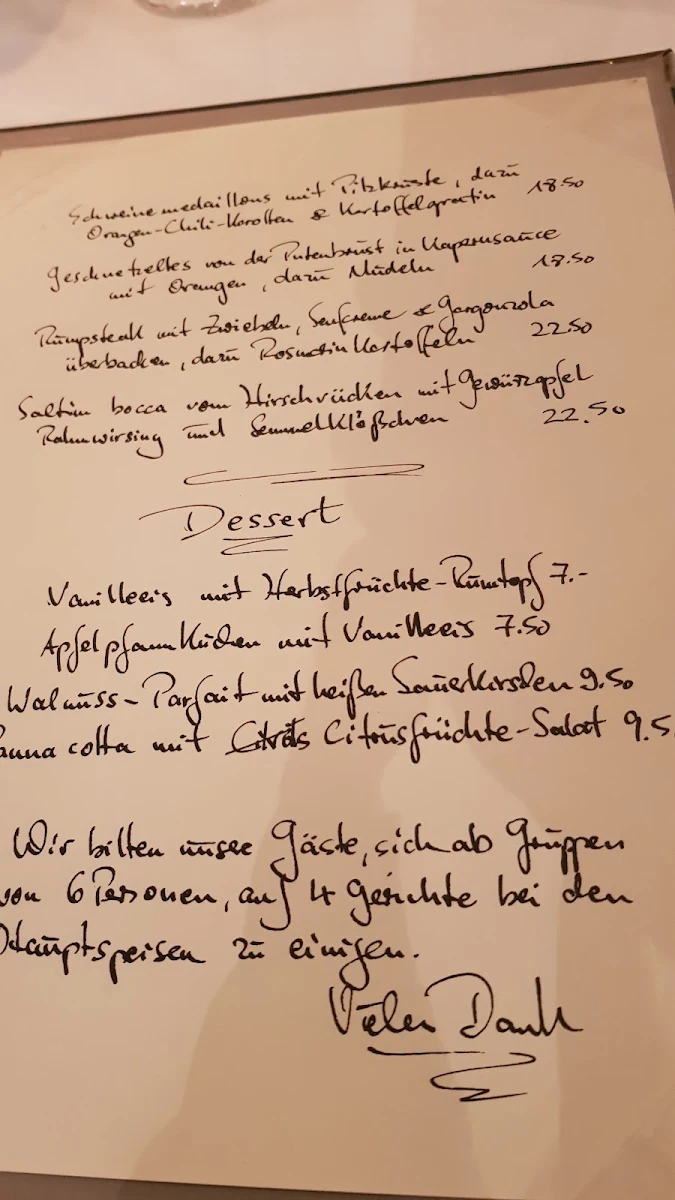 Schweinemedaillons mit Pilzkruste, dazu
Orangen-Chili-Karotten & Kartoffelgratin 18.50
Geschnetzeltes von der Putenbrust in Kapernsauce
mit Orangen, dazu Nudeln 18.50
Rumpsteak mit Zwiebeln, Senfcreme & Gorgonzola
überbacken, dazu Rosmarinkartoffeln 22.50
Saltim bocca vom Hirschrücken mit Gewürzapfel
Rahmwirsing und Semmelklößchen 22.50
Dessert
Vanilleeis mit Herbstfrüchte-Rumtopf 7.-
Apfelpfannkuchen mit Vanilleeis 7.50
Walnuss-Parfait mit heißen Sauerkirschen 9.50
anna cotta mit Citrusfrüchte-Salat 9.5
Wir bitten unsere Gäste, sich ab Gruppen
von 6 Personen, auf 4 Gerichte bei den
Hauptspeisen zu einigen.
Vielen Dank